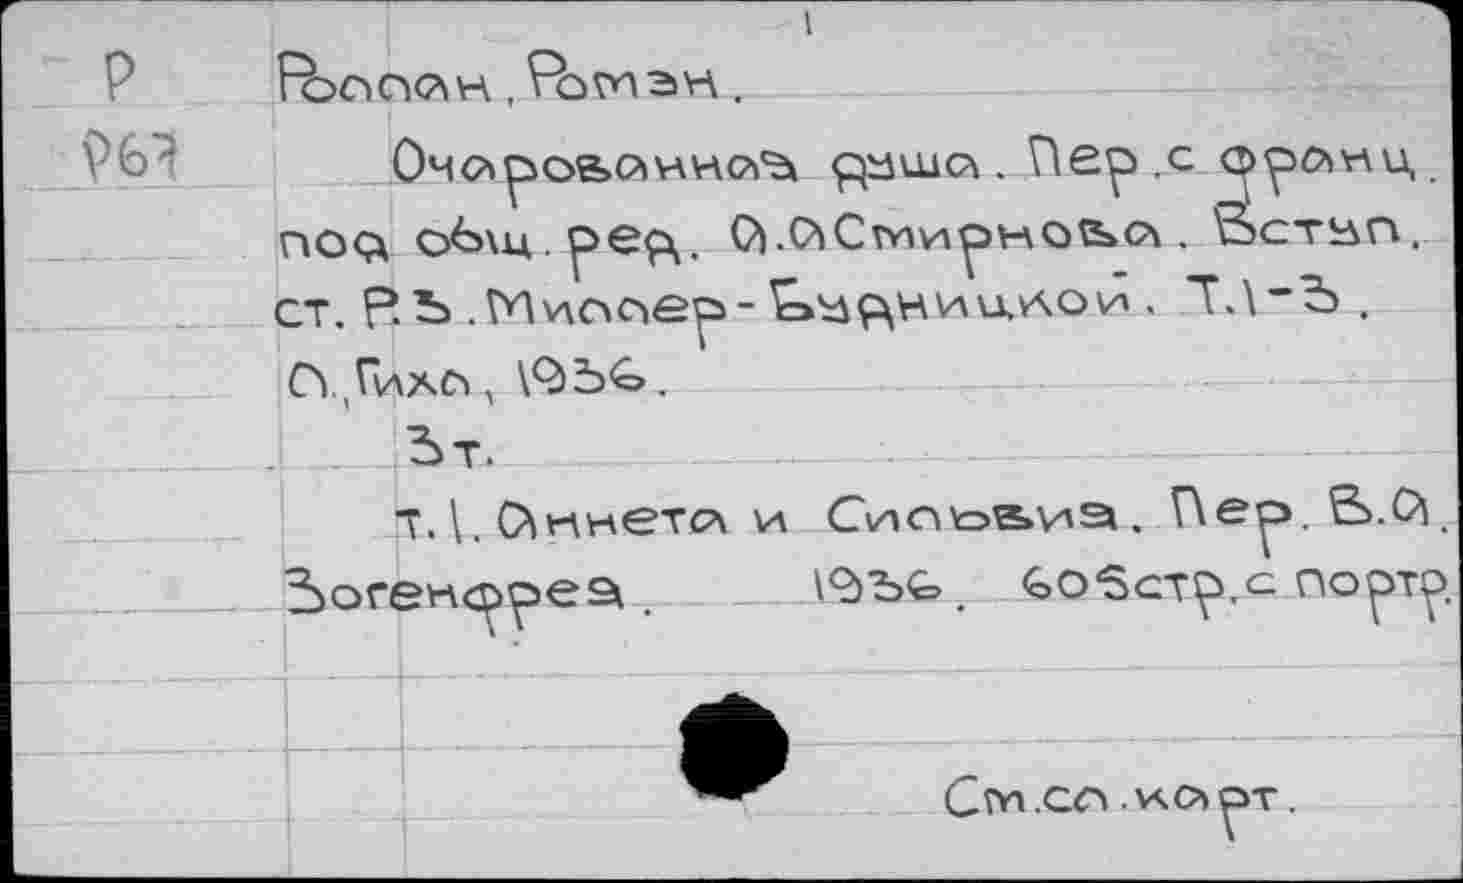 1
Р Роллан, Ромэн.
Р67 Очарованная душа. Пер. с франц.
под общ. ред. А.АСмирнова. Вступ.
ст. Р.З. Миллер-Будницкой. Т.1-3.
Л., Гихл, 1936.
3т.
т.1. Аннета и Сильвия. Пер. В.А.
Зоргенфрея. 1936. 605стр. с портр.
См. сл. карт.